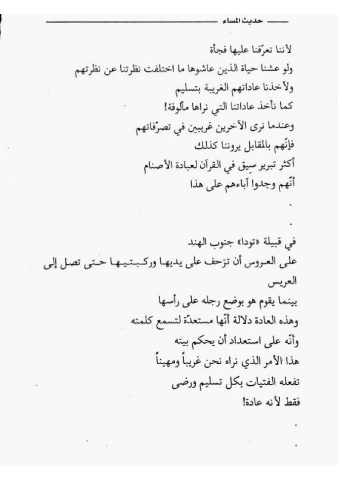 حديث المساء
لأننا تعرّفنا عليها فجأة
ولو عشنا حياة الذين عاشوها ما اختلفت نظرتنا عن نظرتهم
ولأخذنا عاداتهم الغريبة بتسليم
كما نأخذ عاداتنا التي نراها مألوفة!
وعندما نرى الآخرين غريبين في تصرّفاتهم
فإنّهم بالمقابل يروننا كذلك
أكثر تبرير سيق في القرآن لعبادة الأصنام
أنّهم وجدوا آباءهم على هذا
.
.
في قبيلة «تودا» جنوب الهند
على العروس أن تزحف على يديها وركبتيها حتى تصل إلى
العريس
بينما يقوم هو بوضع رجله على رأسها
وهذه العادة دلالة أنّها مستعدّة لتسمع كلمته
وأنّه على استعداد أن يحكم بيته
هذا الأمر الذي نراه نحن غريباً ومهيناً
تفعله الفتيات بكل تسليم ورضى
فقط لأنه عادة!
.
.